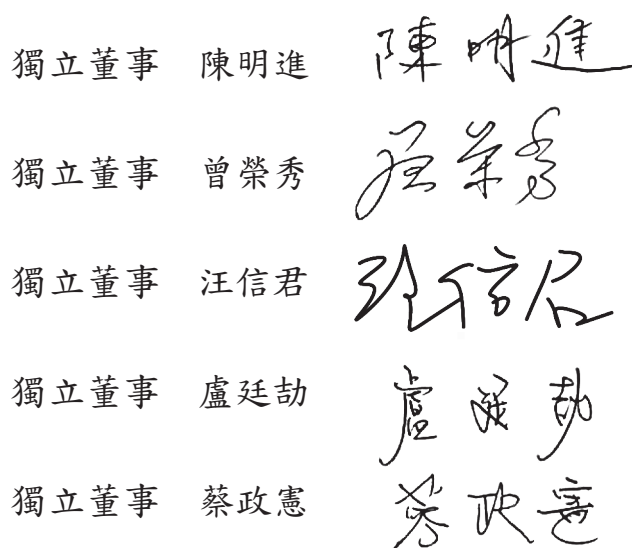 獨立董事 陳明進 陳明進
獨立董事 曾榮秀 曾榮秀
獨立董事 汪信君 汪信君
獨立董事 盧廷劼 盧廷劼
獨立董事 蔡政憲 蔡政憲